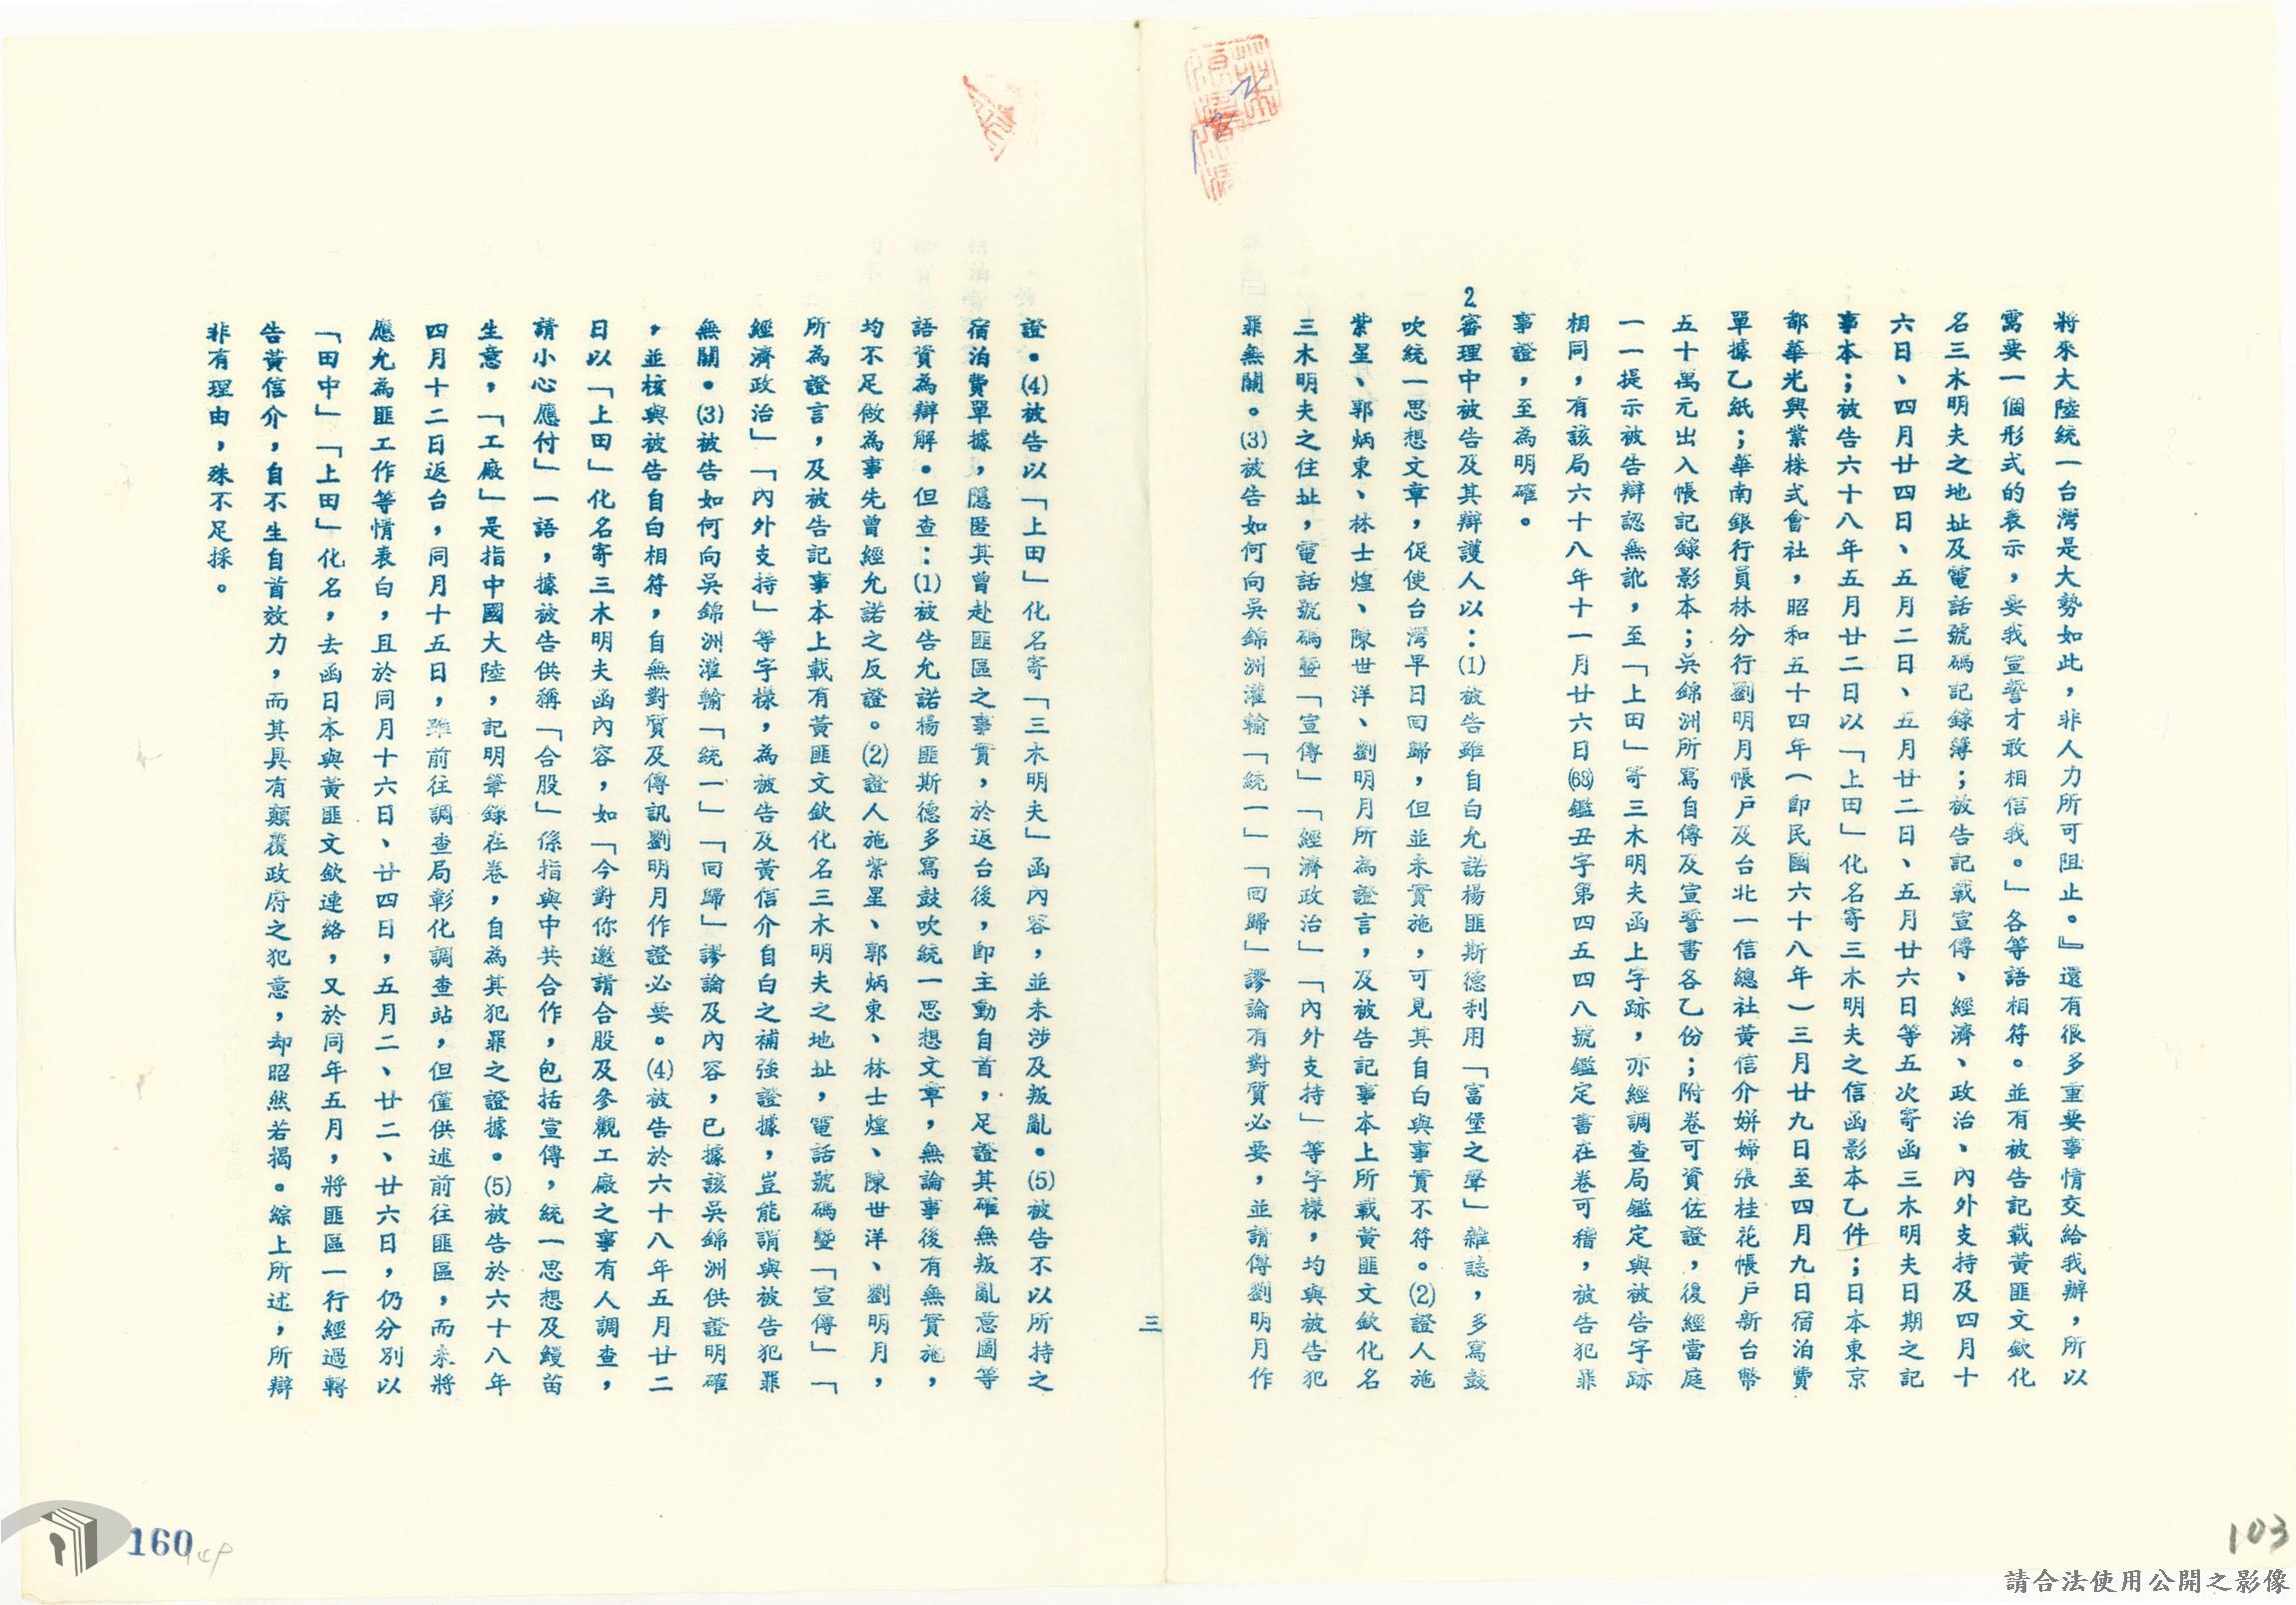 將來大陸統一台灣是大勢如此，非人力所可阻止。』還有很多重要事情交給我辦，所以
需要一個形式的表示，要我宣誓才敢相信我。」各等語相符。並有被告記載黃匪文欽化
名三木明夫之地址及電話號碼記錄簿；被告記載宣傳、經濟、政治、內外支持及四月十
六日、四月廿四日、五月二日、五月廿二日、五月廿六日等五次寄函三木明夫日期之記
事本；被告六十八年五月廿二日以「上田」化名寄三木明夫之信函影本乙件；日本東京
都華光興業株式會社，昭和五十四年（即民國六十八年）三月廿九日至四月九日宿泊費
單據乙紙；華南銀行員林分行劉明月帳戶及台北一信總社黃信介姘婦張桂花帳戶新台幣
五十萬元出入帳記錄影本；吳錦洲所寫自傳及宣誓書各乙份；附卷可資佐證，復經當庭
一一提示被告辯認無訛，至「上田」寄三木明夫函上字跡，亦經調查局鑑定與被告字跡
相同，有該局六十八年十一月廿六日(68)鑑丑字第四五四八號鑑定書在卷可稽，被告犯罪
事證，至為明確。
2審理中被告及其辯護人以：(1)被告雖自白允諾楊匪斯德利用「富堡之聲」雜誌，多寫鼓
吹統一思想文章，促使台灣早日回歸，但並未實施，可見其自白與事實不符。(2)證人施
紫星、郭炳東、林士煌、陳世洋、劉明月所為證言，及被告記事本上所載黃匪文欽化名
三木明夫之住址，電話號碼暨「宣傳」「經濟政治」「內外支持」等字樣，均與被告犯
罪無關。(3)被告如何向吳錦洲灌輸「統一」「回歸」謬論有對質必要，並請傳劉明月作
三
證。(4)被告以「上田」化名寄「三木明夫」函內容，並未涉及叛亂。(5)被告不以所持之
宿泊費單據，隱匿其曾赴匪區之事實，於返台後，即主動自首，足證其確無叛亂意圖等
語資為辯解。但查：(1)被告允諾楊匪斯德多寫鼓吹統一思想文章，無論事後有無實施，
均不足做為事先曾經允諾之反證。(2)證人施紫星、郭炳東、林士煌、陳世洋、劉明月，
所為證言，及被告記事本上載有黃匪文欽化名三木明夫之地址，電話號碼暨「宣傳」「
經濟政治」「內外支持」等字樣，為被告及黃信介自白之補強證據，豈能謂與被告犯罪
無關。(3)被告如何向吳錦洲灌輸「統一」「回歸」謬論及內容，已據該吳錦洲供證明確
，並核與被告自白相符，自無對質及傳訊劉明月作證必要。(4)被告於六十八年五月廿二
日以「上田」化名寄三木明夫函內容，如「今對你邀請合股及參觀工廠之事有人調查，
請小心應付」一語，據被告供稱「合股」係指與中共合作，包括宣傳，統一思想及鰻苗
生意，「工廠」是指中國大陸，記明筆錄在卷，自為其犯罪之證據。(5)被告於六十八年
四月十二日返台，同月十五日，雖前往調查局彰化調查站，但僅供述前往匪區，而未將
應允為匪工作等情表白，且於同月十六日、廿四日，五月二、廿二、廿六日，仍分別以
「田中」「上田」化名，去函日本與黃匪文欽連絡，又於同年五月，將匪區一行經過轉
告黃信介，自不生自首效力，而其具有顛覆政府之犯意，却昭然若揭。綜上所述，所辯
非有理由，殊不足採。
160
103
請合法使用公開之影像